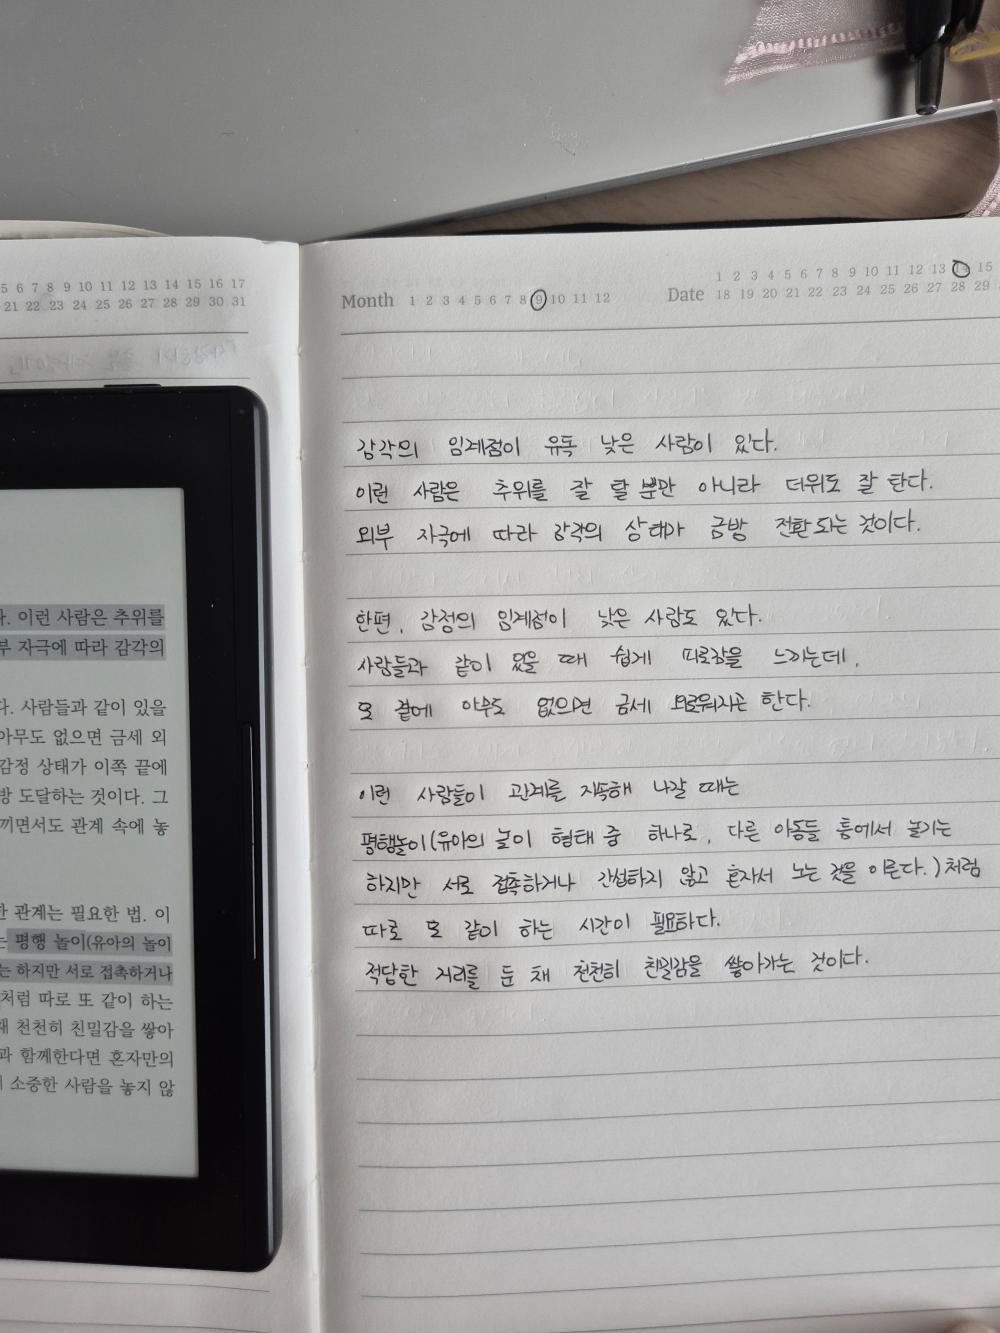 5 6 7 8 9 10 11 12 13 14 15 16 17
21 22 23 24 25 26 27 28 29 30 31
. 이런 사람은 추위를
부 자극에 따라 감각의
다. 사람들과 같이 있을
아무도 없으면 금세 외
감정 상태가 이쪽 끝에
방 도달하는 것이다. 그
끼면서도 관계 속에 놓
한 관계는 필요한 법. 이
는 평행 놀이(유아의 놀이
는 하지만 서로 접촉하거나
처럼 따로 또 같이 하는
채 천천히 친밀감을 쌓아
과 함께한다면 혼자만의
소중한 사람을 놓지 않
Month 1 2 3 4 5 6 7 8 9 10 11 12
Date 1 2 3 4 5 6 7 8 9 10 11 12 13 14 15
18 19 20 21 22 23 24 25 26 27 28 29
감각의 임계점이 유독 낮은 사람이 있다.
이런 사람은 추위를 잘 탈 뿐만 아니라 더위도 잘 탄다.
외부 자극에 따라 감각의 상태가 금방 전환되는 것이다.
한편, 감정의 임계점이 낮은 사람도 있다.
사람들과 같이 있을 때 쉽게 피로감을 느끼는데,
또 곁에 아무도 없으면 금세 외로워지곤 한다.
이런 사람들이 관계를 지속해 나갈 때는
평행놀이(유아의 놀이 형태 중 하나로, 다른 아동들 틈에서 놀기는
하지만 서로 접촉하거나 간섭하지 않고 혼자서 노는 것을 이른다.)처럼
따로 또 같이 하는 시간이 필요하다.
적당한 거리를 둔 채 천천히 친밀감을 쌓아가는 것이다.